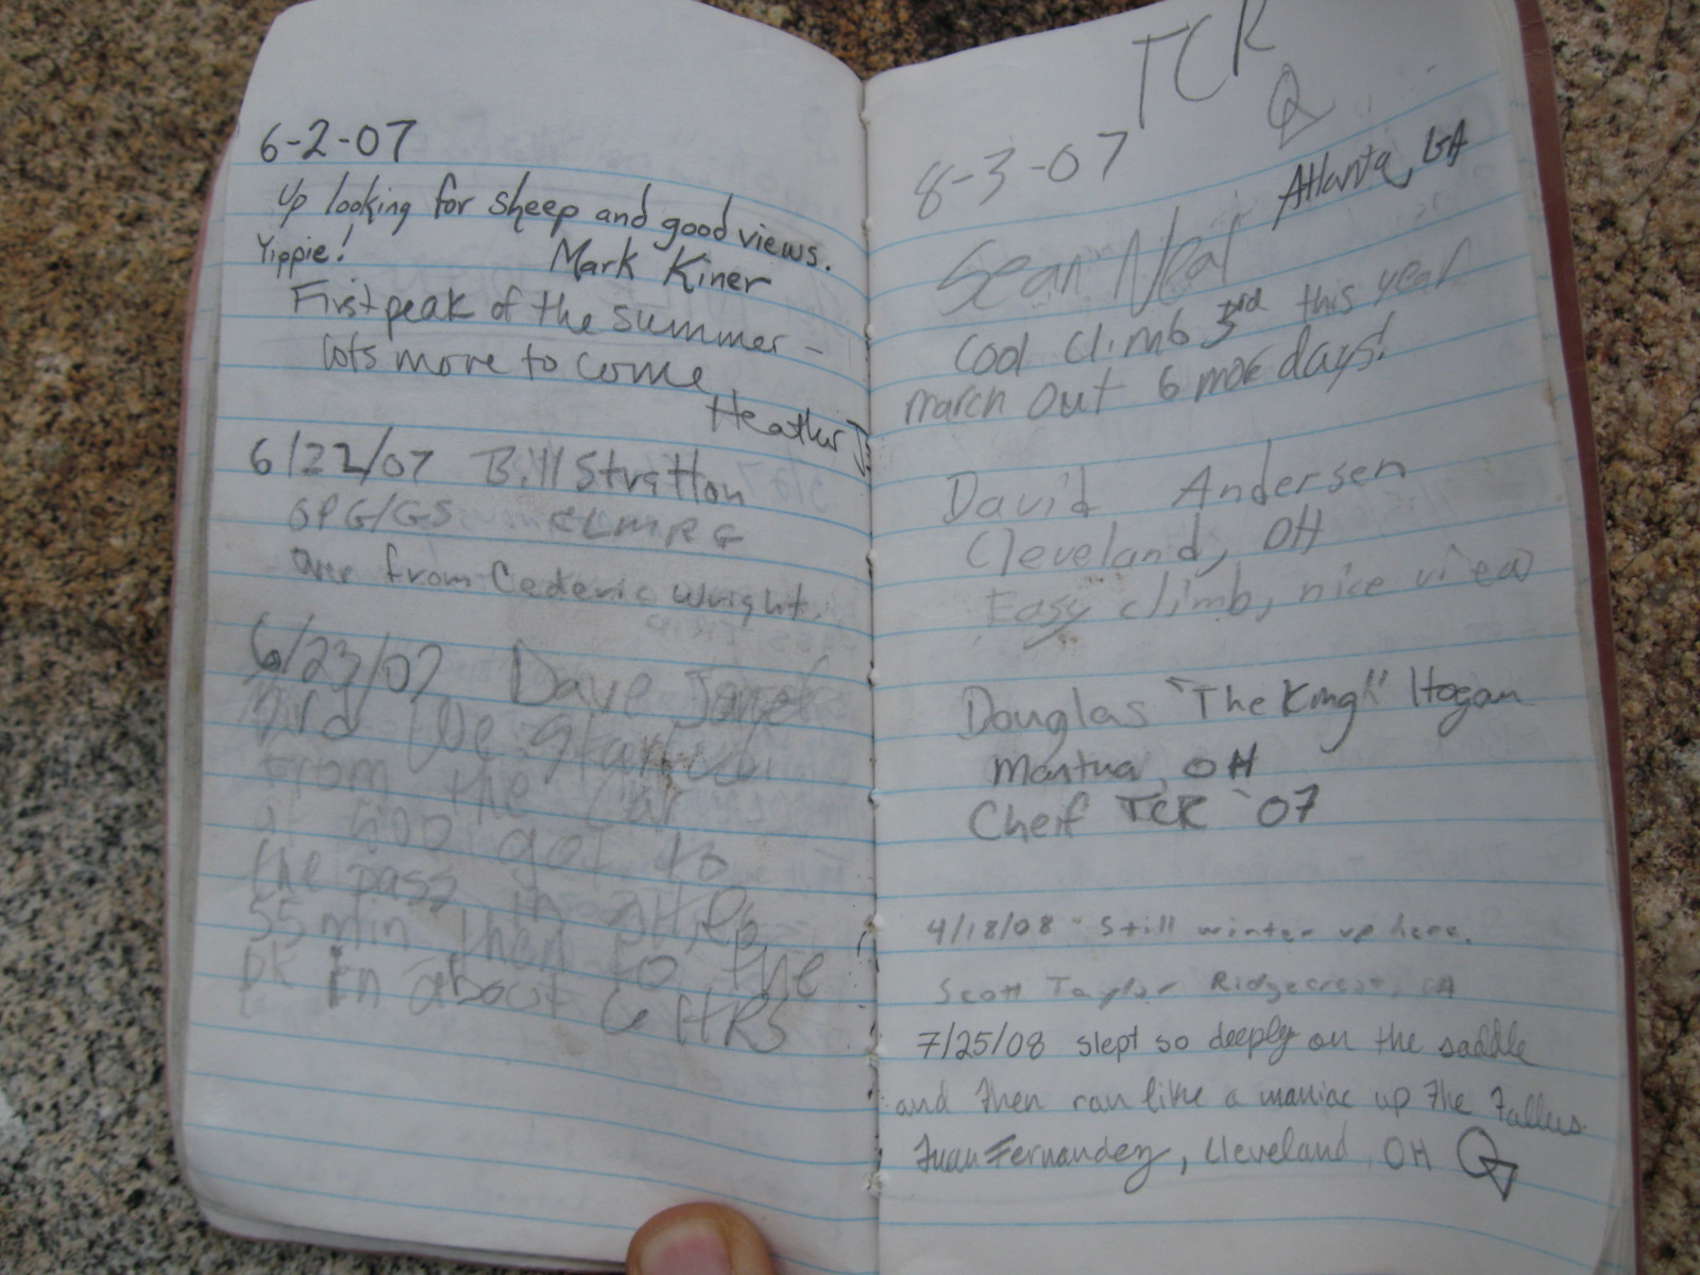 6-2-07
Up looking for sheep and good views.
Yippie! Mark Kiner
First peak of the summer -
lots more to come
Heather J.
6/22/07 Bill Stratton
SPG/GS CLMRG
One from Cederic Wright.
6/23/07 Dave
and We started
from the car
got to
the pass in
55 min then to the
pk in about 6 HRS
TCR
8-3-07 Atlanta, GA
Sean Neal
Cool climb 3rd this year
march out 6 more days!
David Andersen
Cleveland, OH
Easy climb, nice view
Douglas "The King" Hogan
Mantua, OH
Cheif TCR '07
4/18/08 - Still winter up here.
Scott Taylor Ridgecrest, CA
7/25/08 slept so deeply on the saddle
and then ran like a maniac up the
Juan Fernandez, Cleveland, OH